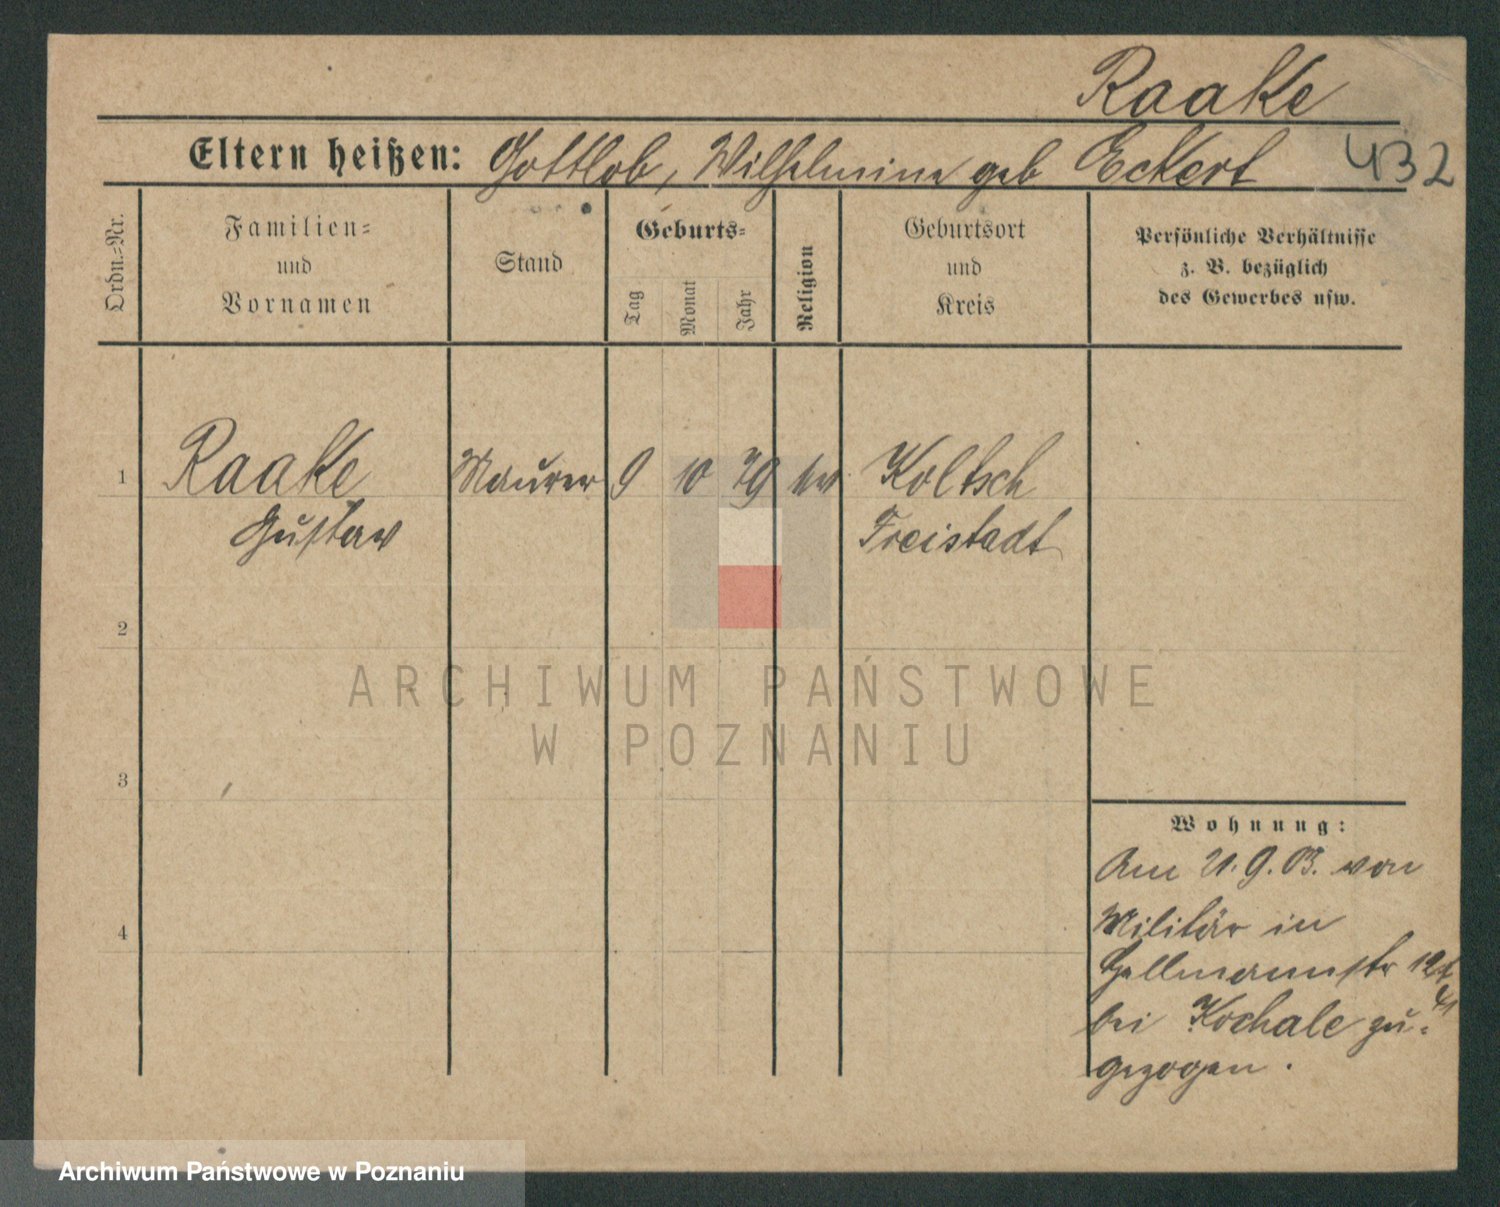 Raake
432
Eltern heißen: Gottlob, Wilhelmine geb Eckert
Ordn.-Nr.
Familien-
und
Vornamen
Stand
Geburts-
Tag
Monat
Jahr
Religion
Geburtsort
und
Kreis
Persönliche Verhältnisse
z. B. bezüglich
des Gewerbes usw.
1
Raake
Gustav
Maurer
9
10
79
ev
Koltsch
Freistadt
2
3
4
ARCHIWUM PAŃSTWOWE
W POZNANIU
Wohnung:
Am 21.9.03. von
Militär in
bei Kochale zu-
gezogen.
Archiwum Państwowe w Poznaniu